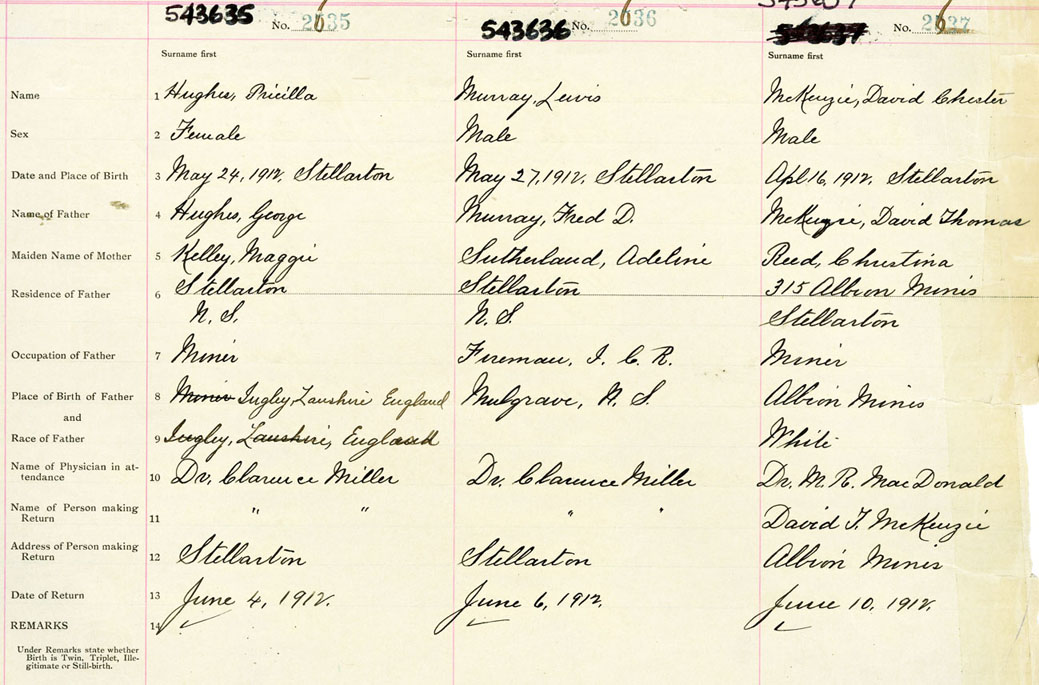 543635 No. 2635 543636 No. 2636 No. 2637
Surname first Surname first Surname first
Name 1 Hughes, Pricilla Murray, Lewis McKenzie, David Chester
Sex 2 Female Male Male
Date and Place of Birth 3 May 24, 1912, Stellarton May 27, 1912, Stellarton Apl 16, 1912, Stellarton
Name of Father 4 Hughes, George Murray, Fred D. McKenzie, David Thomas
Maiden Name of Mother 5 Kelley, Maggie Sutherland, Adeline Reed, Christina
Residence of Father 6 Stellarton Stellarton 315 Albion Mines
N. S. N. S. Stellarton
Occupation of Father 7 Miner Fireman, I. C. R. Miner
Place of Birth of Father 8 Miner Ingley, Lanshire England Mulgrave, N. S. Albion Mines
and
Race of Father 9 Ingley, Lanshire, England White
Name of Physician in at-
tendance 10 Dr. Clarence Miller Dr. Clarence Miller Dr. M. R. MacDonald
Name of Person making
Return 11 " " " " David T. McKenzie
Address of Person making
Return 12 Stellarton Stellarton Albion Mines
Date of Return 13 June 4, 1912. June 6, 1912. June 10, 1912.
REMARKS 14
Under Remarks state whether
Birth is Twin, Triplet, Ille-
gitimate or Still-birth.